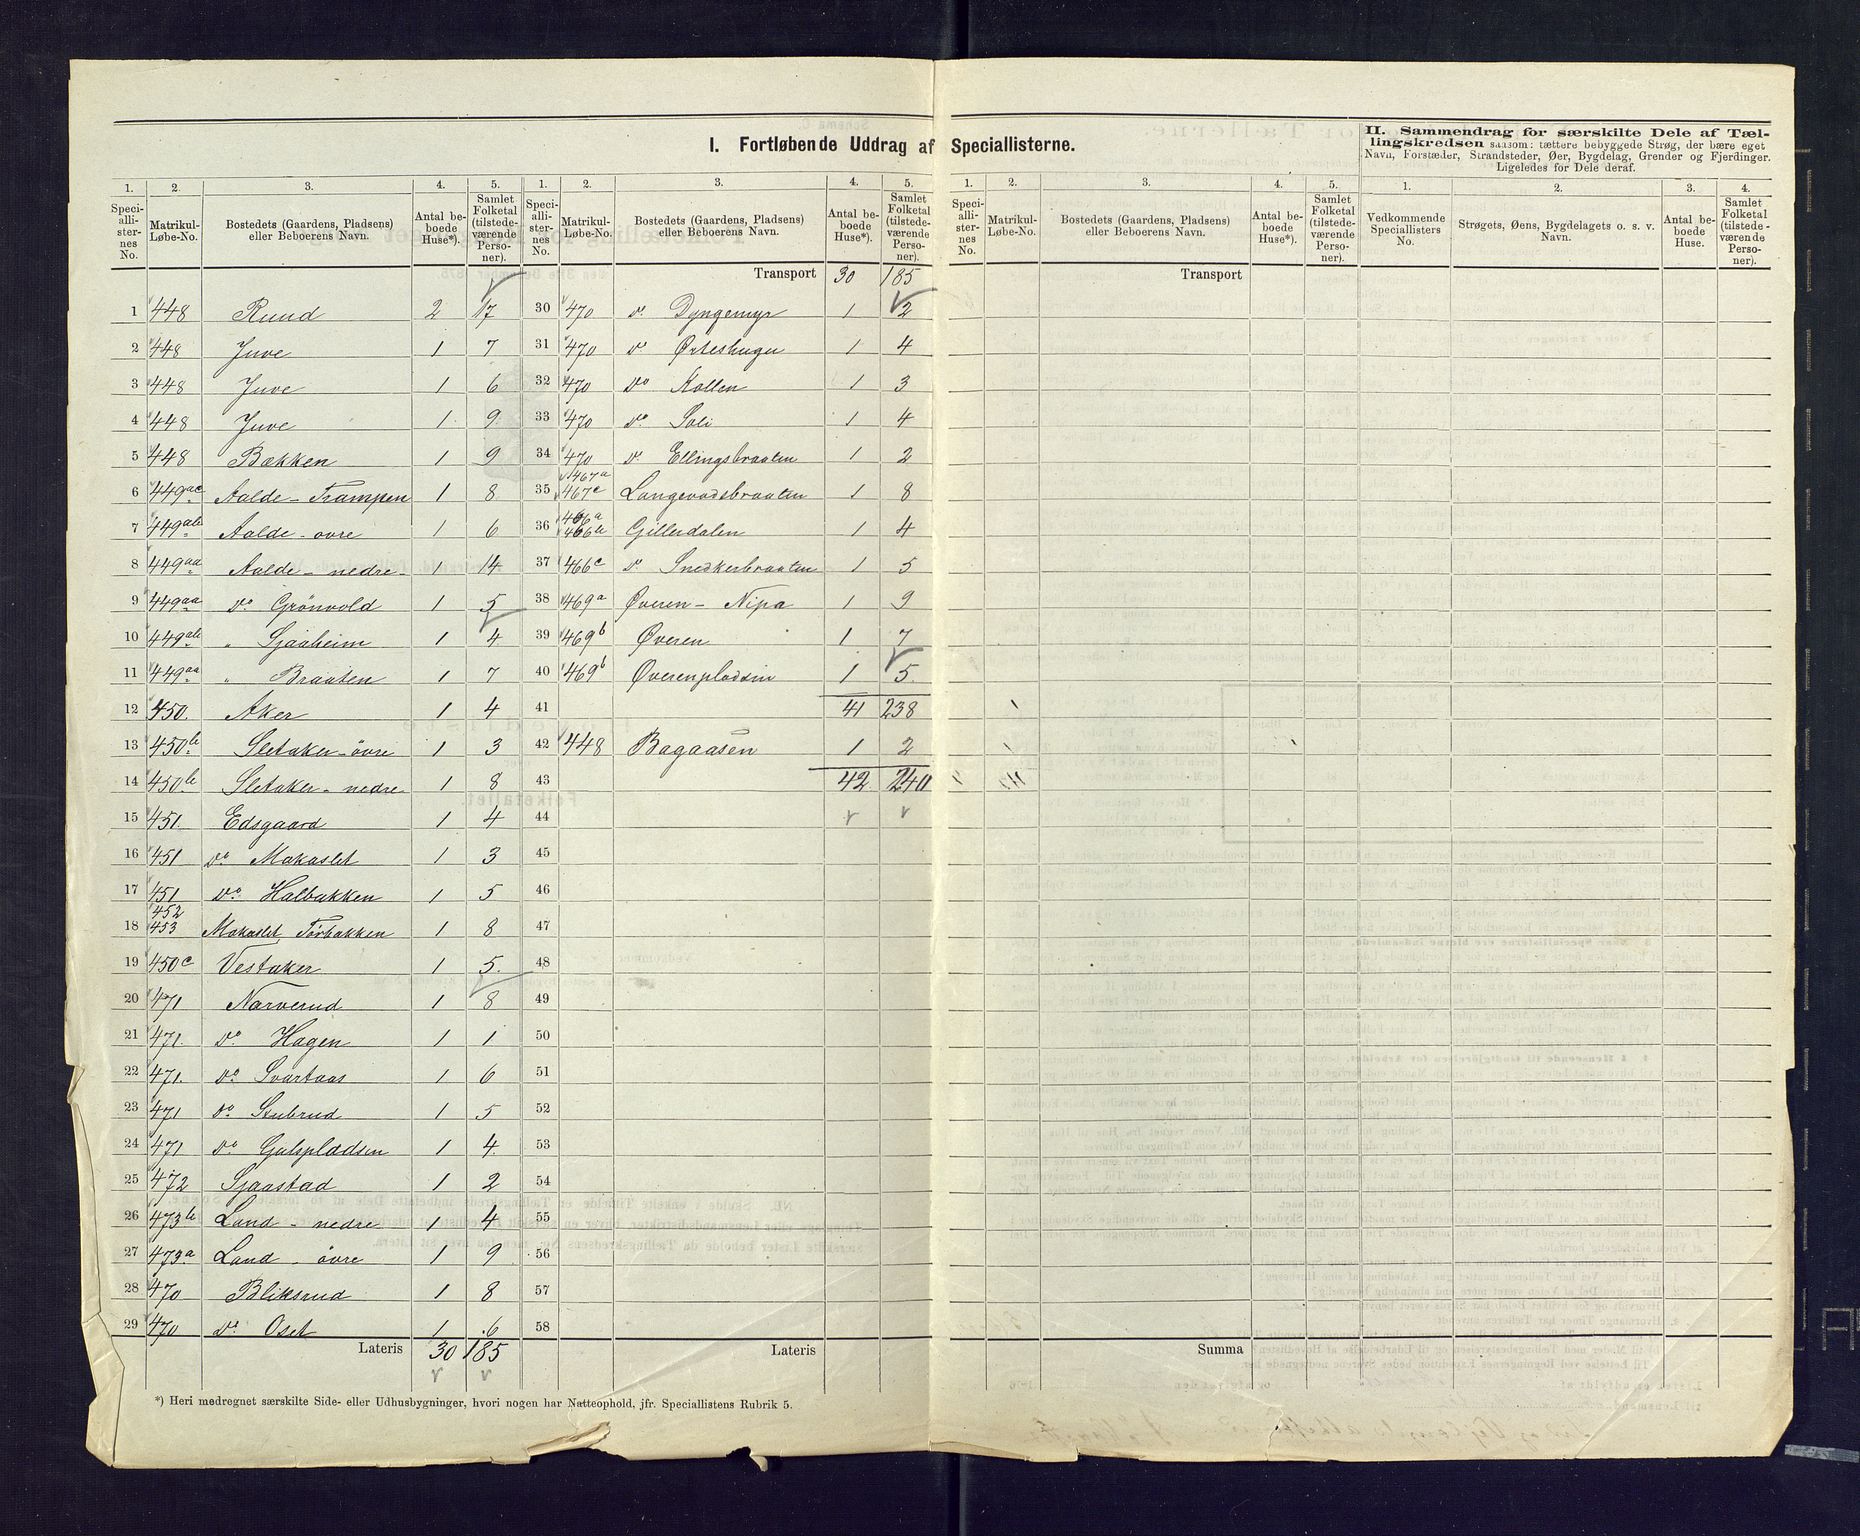 I. Fortløbende Uddrag af Speciallisterne.
II. Sammendrag for særskilte Dele af Tæl-
lingskredsen saasom: tættere bebyggede Strøg, der bære eget
Navn, Forstæder, Strandsteder, Øer, Bygdelag, Grender og Fjerdinger.
Ligeledes for Dele deraf.
1. 2. 3. 4. 5. 1. 2. 3. 4. 5. 1. 2. 3. 4. 5. 1. 2. 3. 4.
Speci-alli-ster-nes No. Matrikul-Løbe-No. Bostedets (Gaardens, Pladsens) eller Beboerens Navn. Antal be-boede Huse*). Samlet Folketal (tilstede-værende Perso-ner).
Speci-alli-ster-nes No. Matrikul-Løbe-No. Bostedets (Gaardens, Pladsens) eller Beboerens Navn. Antal be-boede Huse*). Samlet Folketal (tilstede-værende Perso-ner).
Speci-alli-ster-nes No. Matrikul-Løbe-No. Bostedets (Gaardens, Pladsens) eller Beboerens Navn. Antal be-boede Huse*). Samlet Folketal (tilstede-værende Perso-ner).
Vedkommende Speciallisters No. Strøgets, Øens, Bygdelagets o. s. v. Navn. Antal be-boede Huse. Samlet Folketal (tilstede-værende Perso-ner).
1 448 Ruud 2 17
2 448 Juve 1 7
3 448 Juve 1 6
4 448 Juve 1 9
5 448 Bækken 1 9
6 449ac Aalde-Trampen 1 8
7 449ab Aalde-øvre 1 6
8 449aa Aalde-nedre 1 14
9 449aa do Grönvold 1 5
10 449ab " Sjaaheim 1 4
11 449aa " Braaten 1 7
12 450. Aker 1 4
13 450b Sletaker-övre 1 3
14 450b Sletaker-nedre 1 8
15 451. Edsgaard 1 4
16 451 do Makaslet 1 3
17 451 do Halbakken 1 5
18 452 453 Makaslet Törbakken 1 8
19 450c Vestaker 1 5.
20 471 Narverud 1 8
21 471. do Hagen 1 1
22 471. do Svartaas 1 6
23 471 do Stubrud 1 5
24 471 do Galspladsen 1 4.
25 472 Sjaastad 1 2
26 473b Land - nedre 1 4
27 473a Land - övre 1 9
28 470 Bliksrud 1 8
29 470 do Oset 1 6
Lateris 30 185
Transport 30 185
30 470 do Dyngemyr 1 2
31 470 do Ørteshuger 1 4
32 470 do Kollen 1 3
33 470 do Soli 1 4
34 470 do Ellingsbraaten 1 2
35 467a 467c Langevadsbraaten 1 8
36 466a 466b Gillerdalen 1 4
37 466c do Snedkerbraaten 1 5
38 469a Øveren - Nipa 1 9
39 469b Øveren 1 7
40 469b Øverenpladsen 1 5.
41 41 238
42 448 Bagaasen 1 2
43 42 240
44
45
46
47
48
49
50
51
52
53
54
55
56
57
58
Lateris
Transport
Summa
*) Heri medregnet særskilte Side- eller Udhusbygninger, hvori nogen har Natteophold, jfr. Speciallistens Rubrik 5.